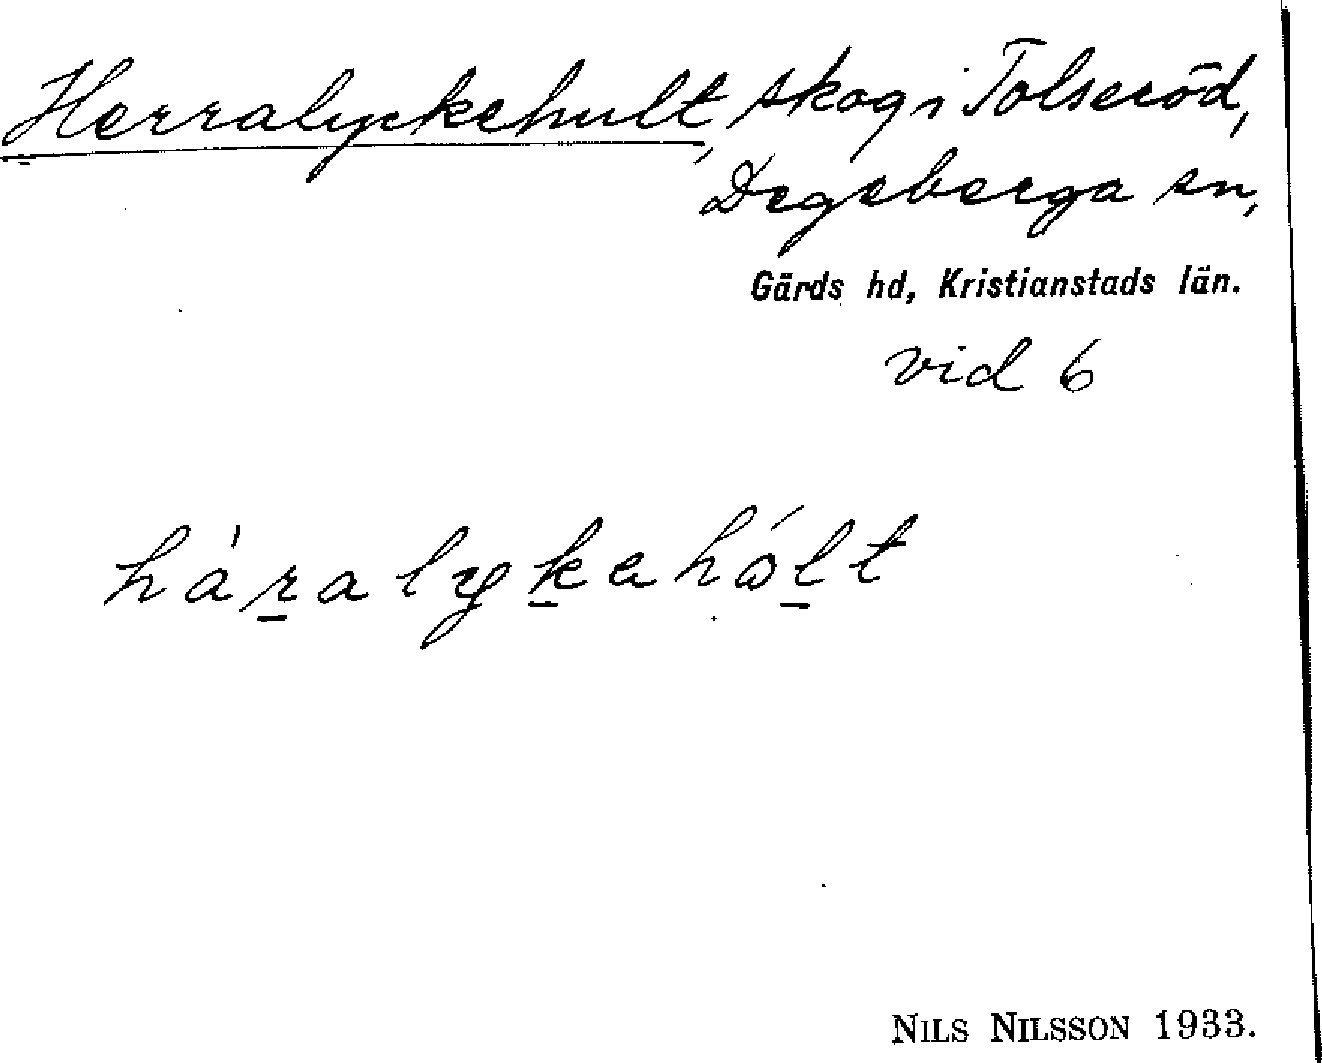 Herralyckehult, skog i Tolseröd,
Degeberga sn,
Gärds hd, Kristianstads län.
vid 6
hàr̲alyk̲ahól̲t
NILS NILSSON 1933.